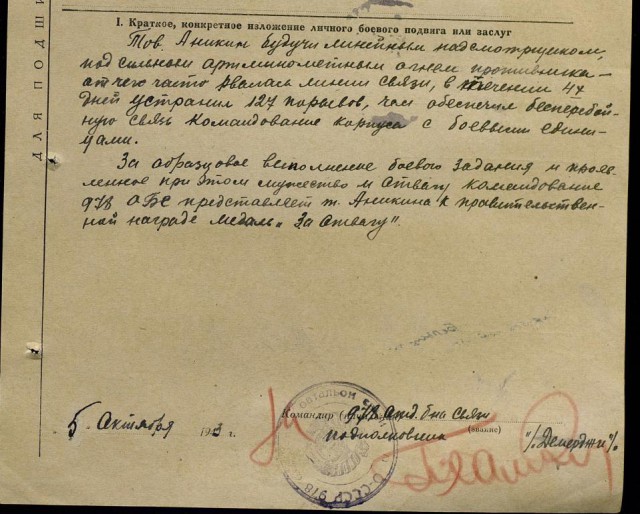 ДЛЯ ПОДШИ
I. Краткое, конкретное изложение личного боевого подвига или заслуг
Тов. Аникин будучи линейным надсмотрщиком,
под сильным артминометным огнем противника —
от чего часто рвалась линия связи, в течении 4х
дней устранил 127 порывов, чем обеспечил бесперебой-
ную связь командование корпуса с боевыми едини-
цами.
За образцовое выполнение боевого задания и прояв-
ленное при этом мужество и отвагу командование
978 ОБС представляет т. Аникина к правительствен-
ной награде медаль „За отвагу".
Командир 978 отд. б-на связи
5 Октября 1943 г.
подполковник (звание) "/. Демерджи"/.